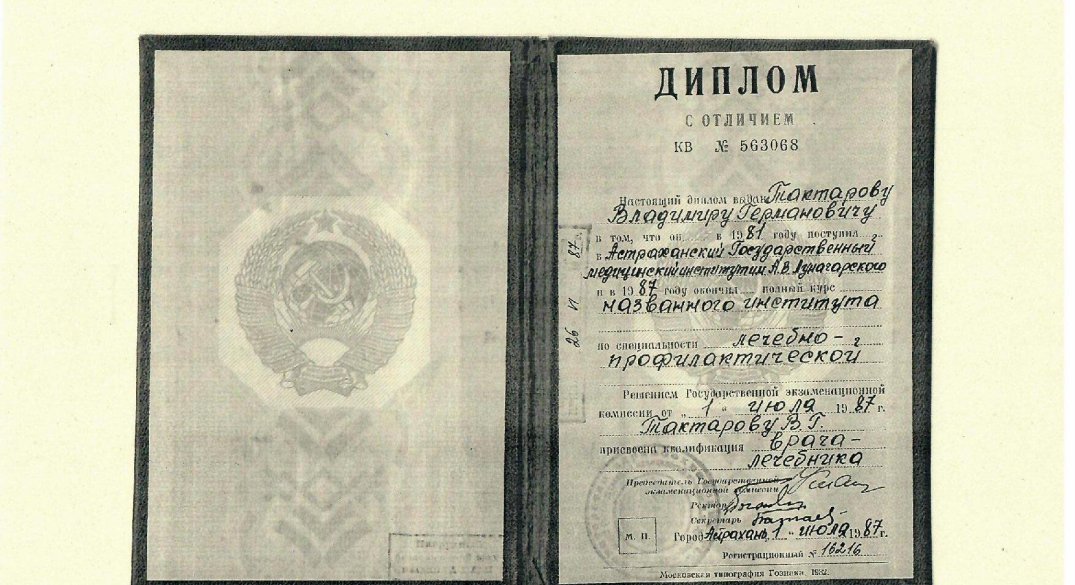 ДИПЛОМ
С ОТЛИЧИЕМ
КВ № 563068
Настоящий диплом выдан Тактарову
Владимиру Германовичу
в том, что он в 1981 году поступил
в Астраханский Государственный
медицинский институт им. А.В. Луначарского
и в 1987 году окончил полный курс
названного института
по специальности лечебно-
профилактической
Решением Государственной экзаменационной
комиссии от „1“ июля 1987 г.
Тактарову В.Г.
присвоена квалификация врача-
лечебника
Председатель Государственной
экзаменационной комиссии
Ректор
Секретарь
М. П. Город Астрахань, 1 “ июля 1987 г.
Регистрационный № 16216
Московская типография Гознака. 1982.
26 VI 87